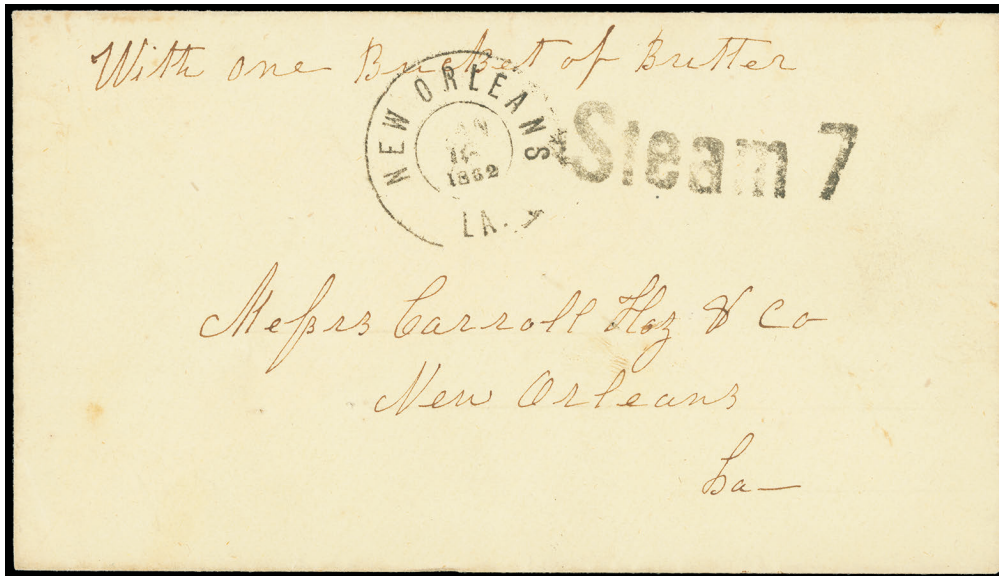 With one Bucket of Butter
NEW ORLEANS
JAN
1862
LA.
Steam 7
Messrs Carroll Hoy & Co
New Orleans
La—